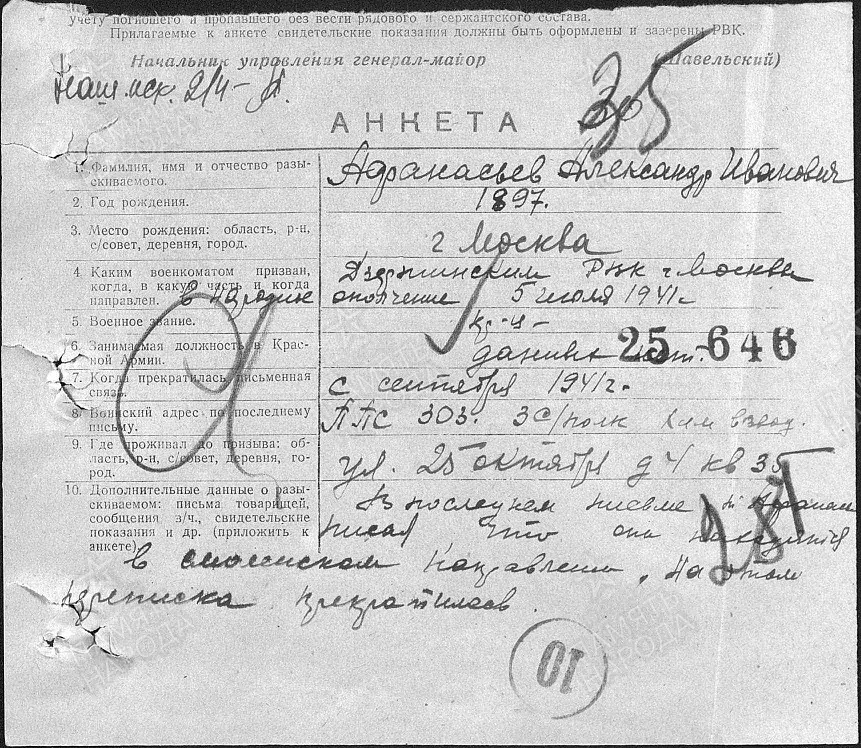 учету погибшего и пропавшего без вести рядового и сержантского состава.
Прилагаемые к анкете свидетельские показания должны быть оформлены и заверены РВК.
Начальник управления генерал-майор (Шавельский)
АНКЕТА
35
1. Фамилия, имя и отчество разыскиваемого. Афанасьев Александр Иванович
2. Год рождения. 1897.
3. Место рождения: область, р-н, с/совет, деревня, город. г Москва
4. Каким военкоматом призван, когда, в какую часть и когда направлен. Дзержинским РВК г. Москвы в народн ополчение 5 июля 1941 г
5. Военное звание. кр-ц-
6. Занимаемая должность в Красной Армии. данных нет.
25646
7. Когда прекратилась письменная связь. с сентября 1941 г.
8. Воинский адрес по последнему письму. ППС 303. 3 с/полк хим взвод.
9. Где проживал до призыва: область, р-н, с/совет, деревня, город. ул. 25 октября д 4 кв 35
10. Дополнительные данные о разыскиваемом: письма товарищей, сообщения з/ч., свидетельские показания и др. (приложить к анкете). В последнем письме
писал что они находятся
в смоленском направлении, на этом
переписка прекратилась.
10
ПАМЯТЬ НАРОДА